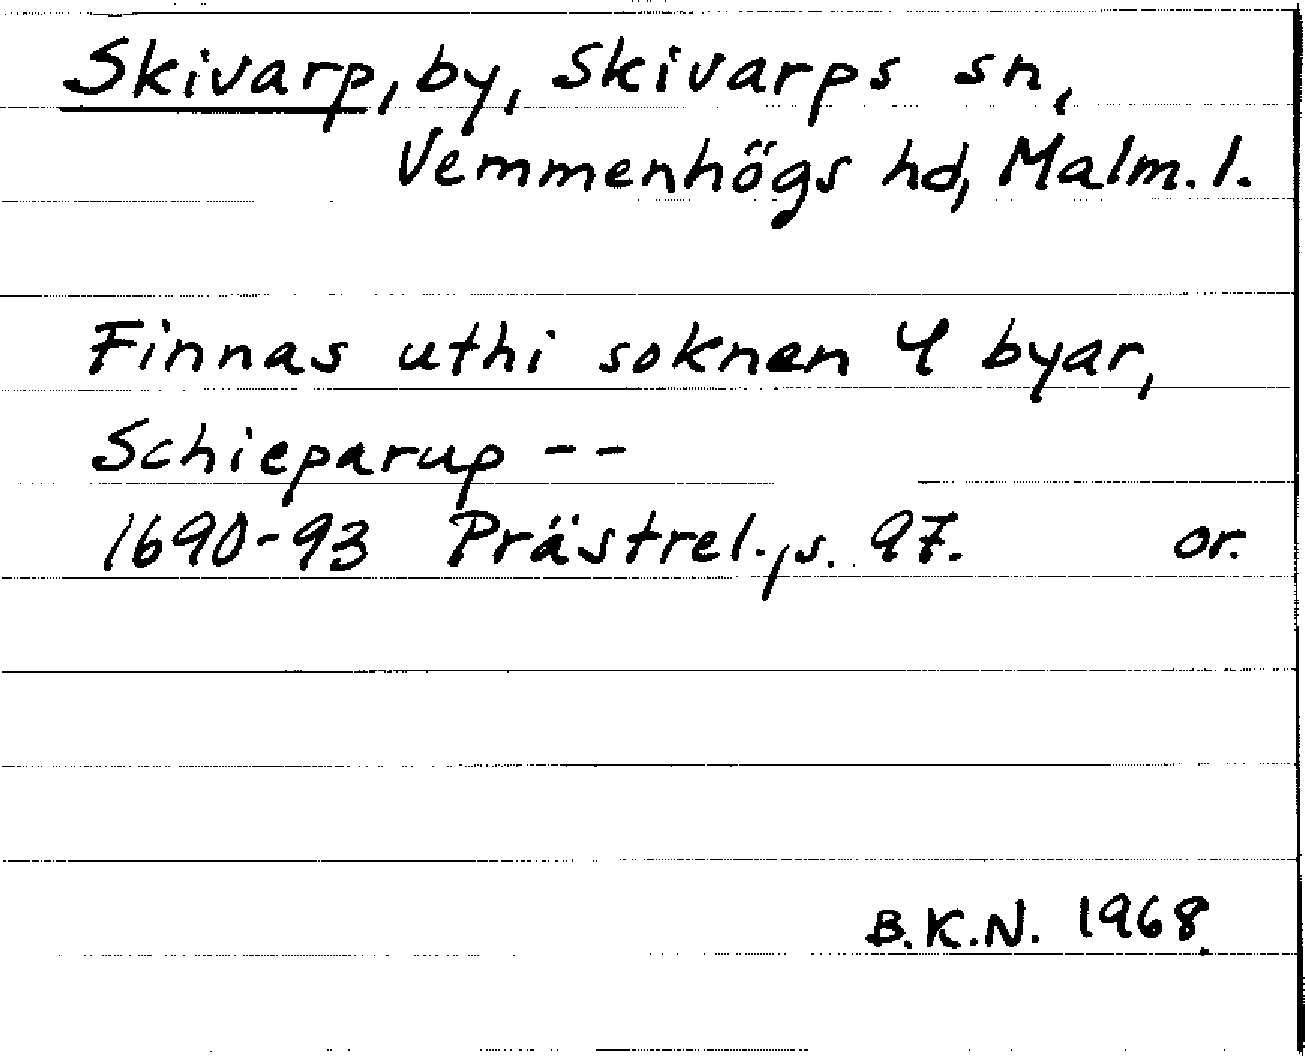 Skivarp, by, Skivarps sn,
Vemmenhögs hd, Malm. l.
Finnas uthi soknen 4 byar,
Schieparup --
1690-93 Prästrel., s. 97. or.
B.K.N. 1968.